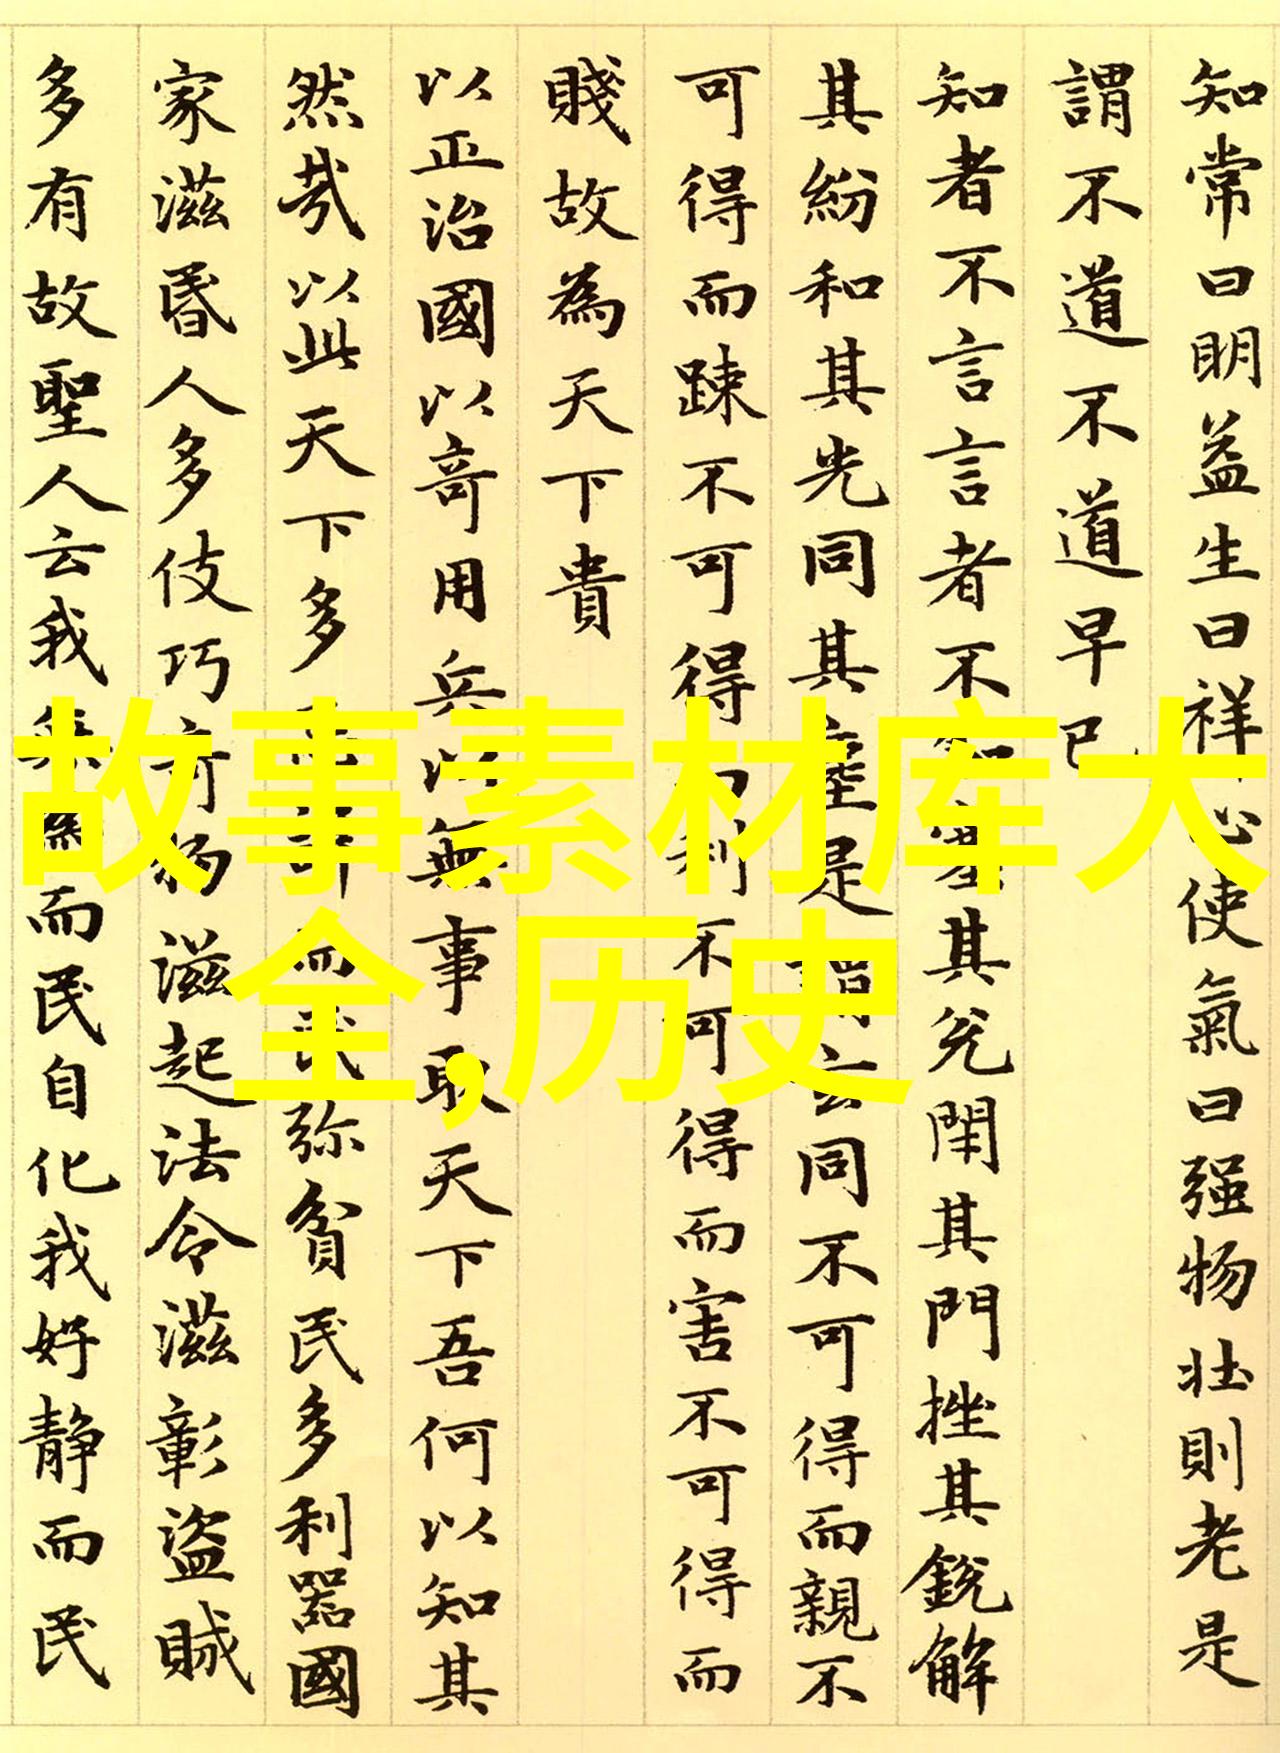 知常曰明益生曰祥心使氣曰强物壯則老是
謂不道不道早已
知者不言言者不知塞其兌閉其門挫其銳解
其紛和其光同其塵是謂玄同不可得而親不
可得而踈不可得而利不可得而害不可得而
賤故為天下貴
以正治國以奇用兵以無事取天下吾何以知其
然哉以此天下多而民弥貧民多利器國
家滋昬人多伎巧奇物滋起法令滋彰盗賊
多有故聖人云我無為而民自化我好静而民
故事素材库大
全,历史